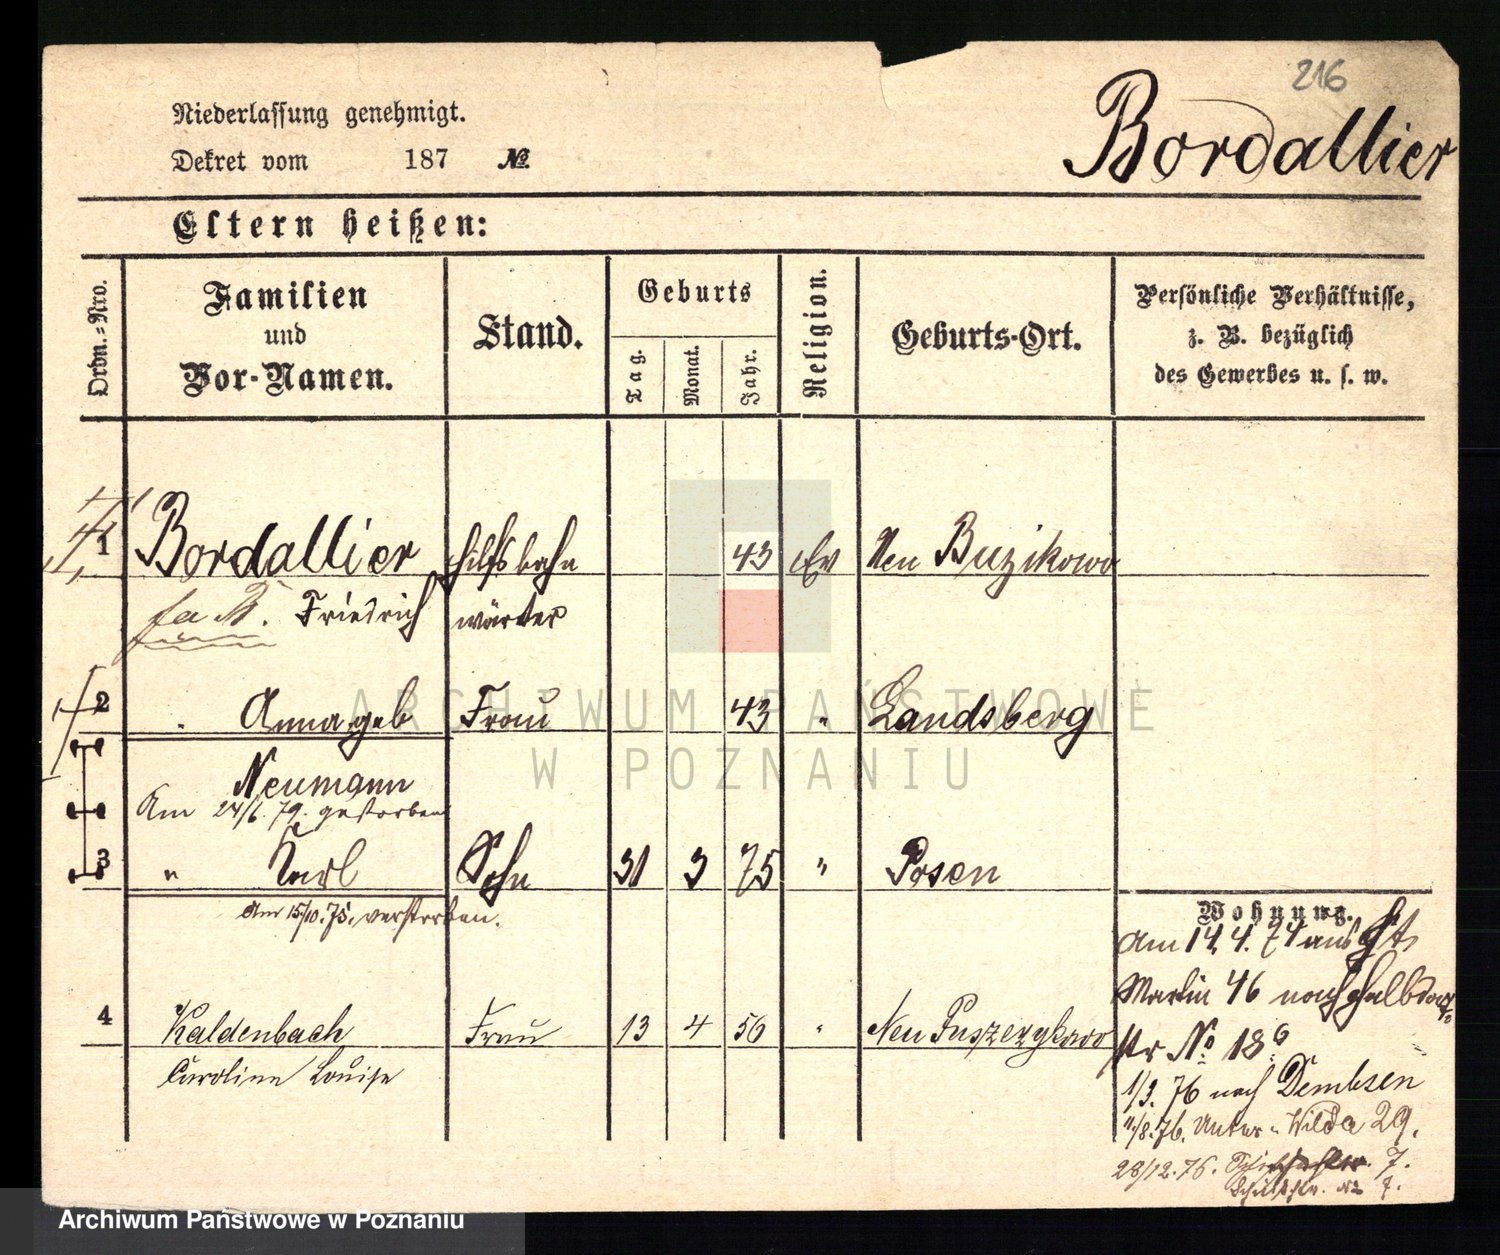 216
Niederlassung genehmigt.
Bordallier
Dekret vom 187 №
Eltern heißen:
Ordn.-Nro.
Familien und Vor-Namen.
Stand.
Geburts
Tag.
Monat.
Jahr.
Religion.
Geburts-Ort.
Persönliche Verhältnisse, z. B. bezüglich des Gewerbes u. s. w.
1 Bordallier hilfsbahn 43 Ev Neu Buzikowo
Friedrich wärter
2 " Anna geb Frau 43 " Landsberg
Neumann
Am 24/6. 79. gestorben
3 " Karl Sohn 31 3 75 " Posen
Am 15/10. 75. verstorben.
Wohnung.
Am 14. 4. 74 aus St.
Martin 46 nach Halbdorf-
str No 18
4 Kaldenbach Frau 13 4 56 " Neu
Caroline Louise
1/3. 76 nach Dembsen
Unter-Wilda 29.
28/12. 76. 7.
7.
ARCHIWUM PAŃSTWOWE
W POZNANIU
Archiwum Państwowe w Poznaniu